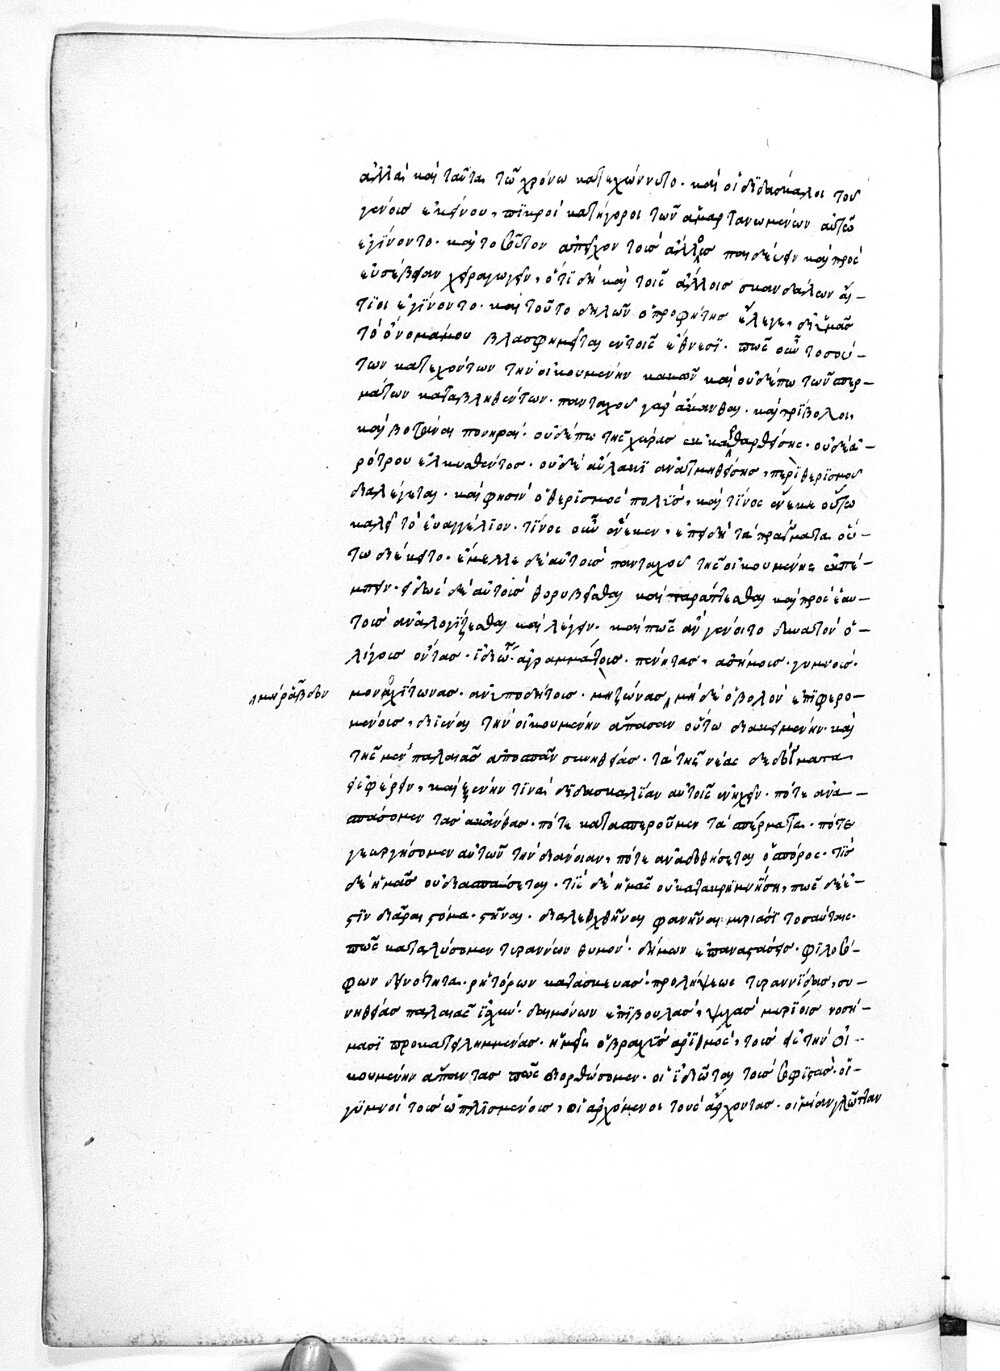 ἀλλὰ καὶ ταῦτα τῶ χρόνω κατεχώννυτο· καὶ οἱ διδάσκαλοι τοῦ
γένους ἐκείνου, πικροὶ κατήγοροι τῶν ἁμαρτανομένων αὐτῶ
ἐγίνοντο· καὶ τοσοῦτον ἀπεῖχον τοὺς ἄλλους παιδεύειν καὶ πρὸς
εὐσέβειαν χειραγωγεῖν, ὅτι δὴ καὶ τοῖς ἄλλοις σκανδάλων αἴ-
τιοι ἐγίνοντο· καὶ τοῦτο δηλῶν ὁ προφήτης ἔλεγε, δι' ὑμᾶς
τὸ ὄνομά μου βλασφημεῖται ἐν τοῖς ἔθνεσι· πῶς οὖν τοσού-
των κατεχόντων τὴν οἰκουμένην κακῶν καὶ οὐδέπω τῶν σπερ-
μάτων καταβληθέντων· πανταχοῦ γὰρ ἄκανθαι· καὶ τρίβολοι,
καὶ βοτάναι πονηραί· οὐδέπω τῆς χώρας ἐκκαθαρθείσης· οὐδὲ ἀ-
ρότρου ἑλκυσθέντος· οὐδὲ αὔλακι ἀνατμηθείσης, περὶ θερισμοῦ
διαλέγεται· καὶ φησὶν ὁ θερισμὸς πολύς, καὶ τίνος ἕνεκε οὕτω
καλεῖ τὸ εὐαγγέλιον· τίνος οὖν ἕνεκεν, ἐπειδὴ τὰ πράγματα οὕ-
τω διέκειτο· ἔμελλε δὲ αὐτοὺς πανταχοῦ τῆς οἰκουμένης ἐκπέ-
μπειν· εἰκὸς δὲ αὐτοὺς θορυβεῖσθαι καὶ ταράττεσθαι καὶ πρὸς ἑαυ-
τοὺς ἀναλογίζεσθαι καὶ λέγειν· καὶ πῶς ἂν γένοιτο δυνατὸν ὀ-
λίγους ὄντας· ἰδιώτας· ἀγραμμάτους· πένητας, ἀσήμους· γυμνούς·
μονοχίτωνας· ἀνυποδήτους· μὴ ζώνας, μηδὲ ὀβολὸν ἐπιφερο-
μὴ ῥάβδον
μένους, διϊέναι τὴν οἰκουμένην ἅπασαν οὕτω διακειμένην· καὶ
τῆς μὲν παλαιᾶς ἀποσπᾶν συνηθείας· τὰ τῆς νέας δὲ δόγματα
εἰσφέρειν, καὶ ξένην τινὰ διδασκαλίαν αὐτοῖς ἐνηχεῖν· πότε ἀνα-
σπάσομεν τὰς ἀκάνθας· πότε κατασπεροῦμεν τὰ σπέρματα· πότε
γεωργήσομεν αὐτῶν τὴν διάνοιαν, πότε ἀναδοθήσεται ὁ σπόρος· τίς
δὲ ἡμᾶς οὐ διασπάσεται· τίς δὲ ἡμᾶς οὐ κατακρημνίσῃ, πῶς δὲ ἔ-
στιν διᾶραι στόμα· στῆναι· διαλεχθῆναι φανῆναι μυριάσι τοσαύταις·
πῶς καταλύσομεν τυράννων θυμόν· δήμων ἐπαναστάσεις· φιλοσό-
φων δεινότητα· ῥητόρων κατασκευάς· προλήψεως τυραννίδας, συ-
νηθείας παλαιᾶς ἰσχύν· δαιμόνων ἐπιβουλάς, ψυχὰς μυρίοις νοσή-
μασι προκατειλημμένας· ἡμεῖς ὁ βραχὺς ἀριθμός, τοὺς εἰς τὴν οἰ-
κουμένην ἅπαντας πῶς διορθώσομεν· οἱ ἰδιῶται τοὺς σοφιστάς· οἱ
γυμνοὶ τοὺς ὡπλισμένους, οἱ ἀρχόμενοι τοὺς ἄρχοντας· οἱ μίαν γλῶτταν